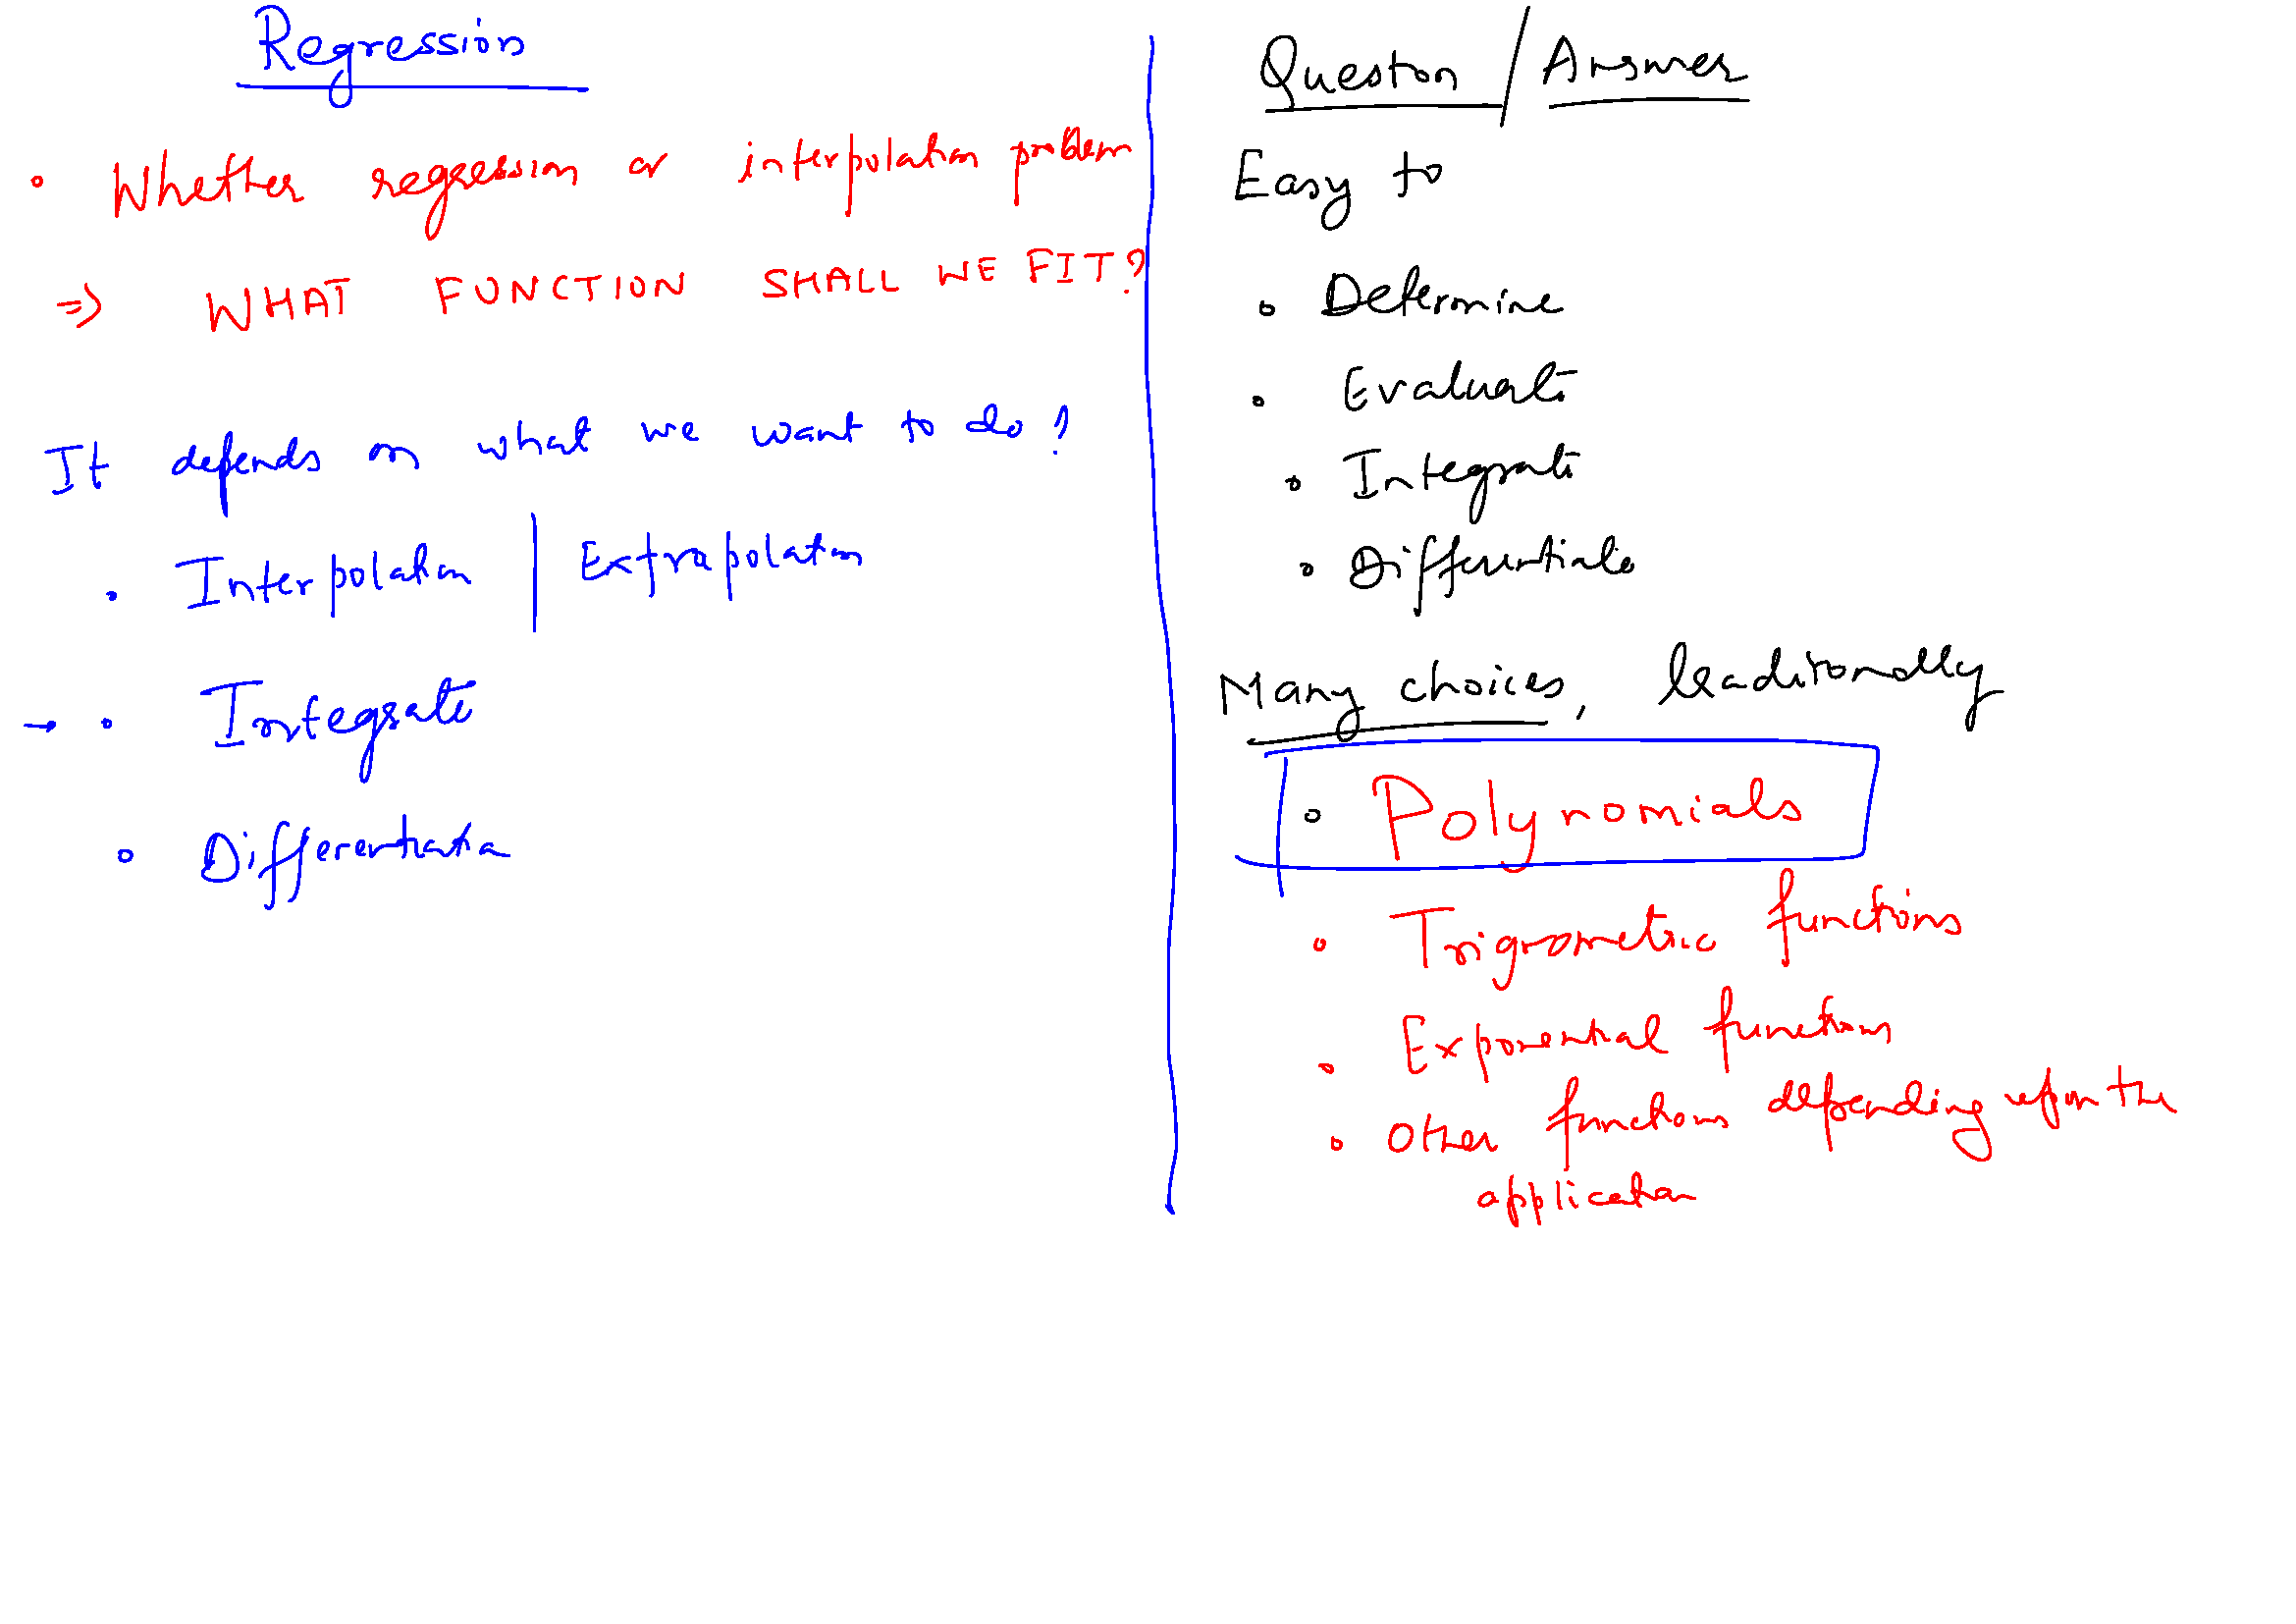 Regression
• Whether regression or interpolation problem
⇒ WHAT FUNCTION SHALL WE FIT?
It depends on what we want to do?
• Interpolation | Extrapolation
→ • Integrate
• Differentiation
Queston / Answer
Easy to
• Determine
• Evaluate
• Integrate
• Differentiate
Many choices,
• Polynomials
• Trignometric functions
• Exponential functions
• Other functions depending upon the
application